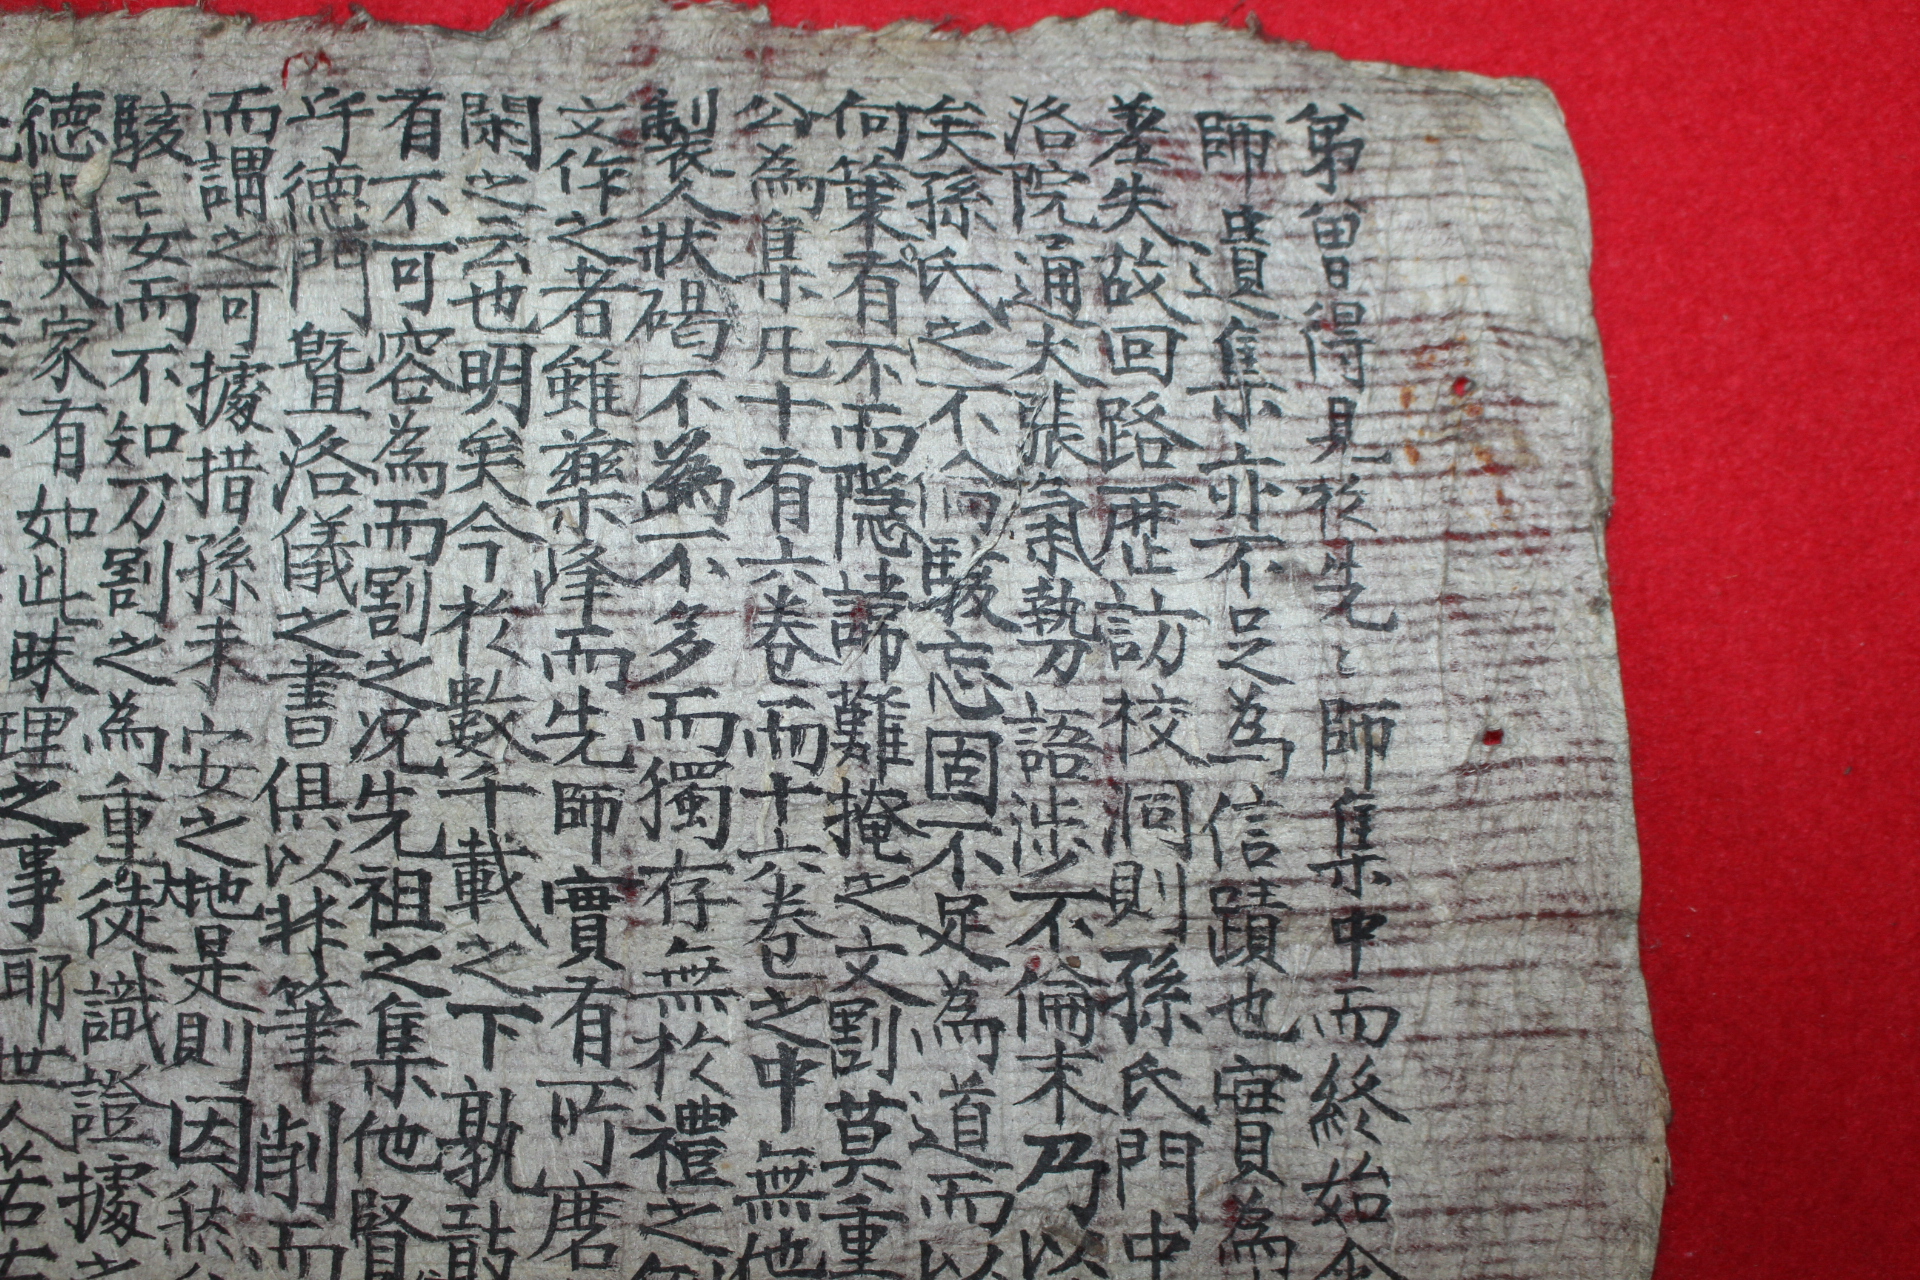 弟曾得見於先〻師集中而終始
師遺集亦不足為信蹟也實為
差失故回路歷訪校洞則孫氏門中
洛院通大張氣勢語涉不倫末乃以
矣孫氏之不倫駭忘固不足為道而以
何篥有不而隱諱難掩之文割莫重
公為集凡十有六卷而十六卷之中無他
製人狀碣不為不多而獨存無於禮之
文作之者雖藥峰而先師實有所磨
閑之云也明矣今於數千載之下孰敢
有不可容為而割之况先祖之集他賢
乎德門暨洛儀之書俱以井筆削而
而謂之可據措孫未安之地是則因然
駭亡妄而不知刀割之為重徒識證據
德門大家有如此昧理之事耶世人若